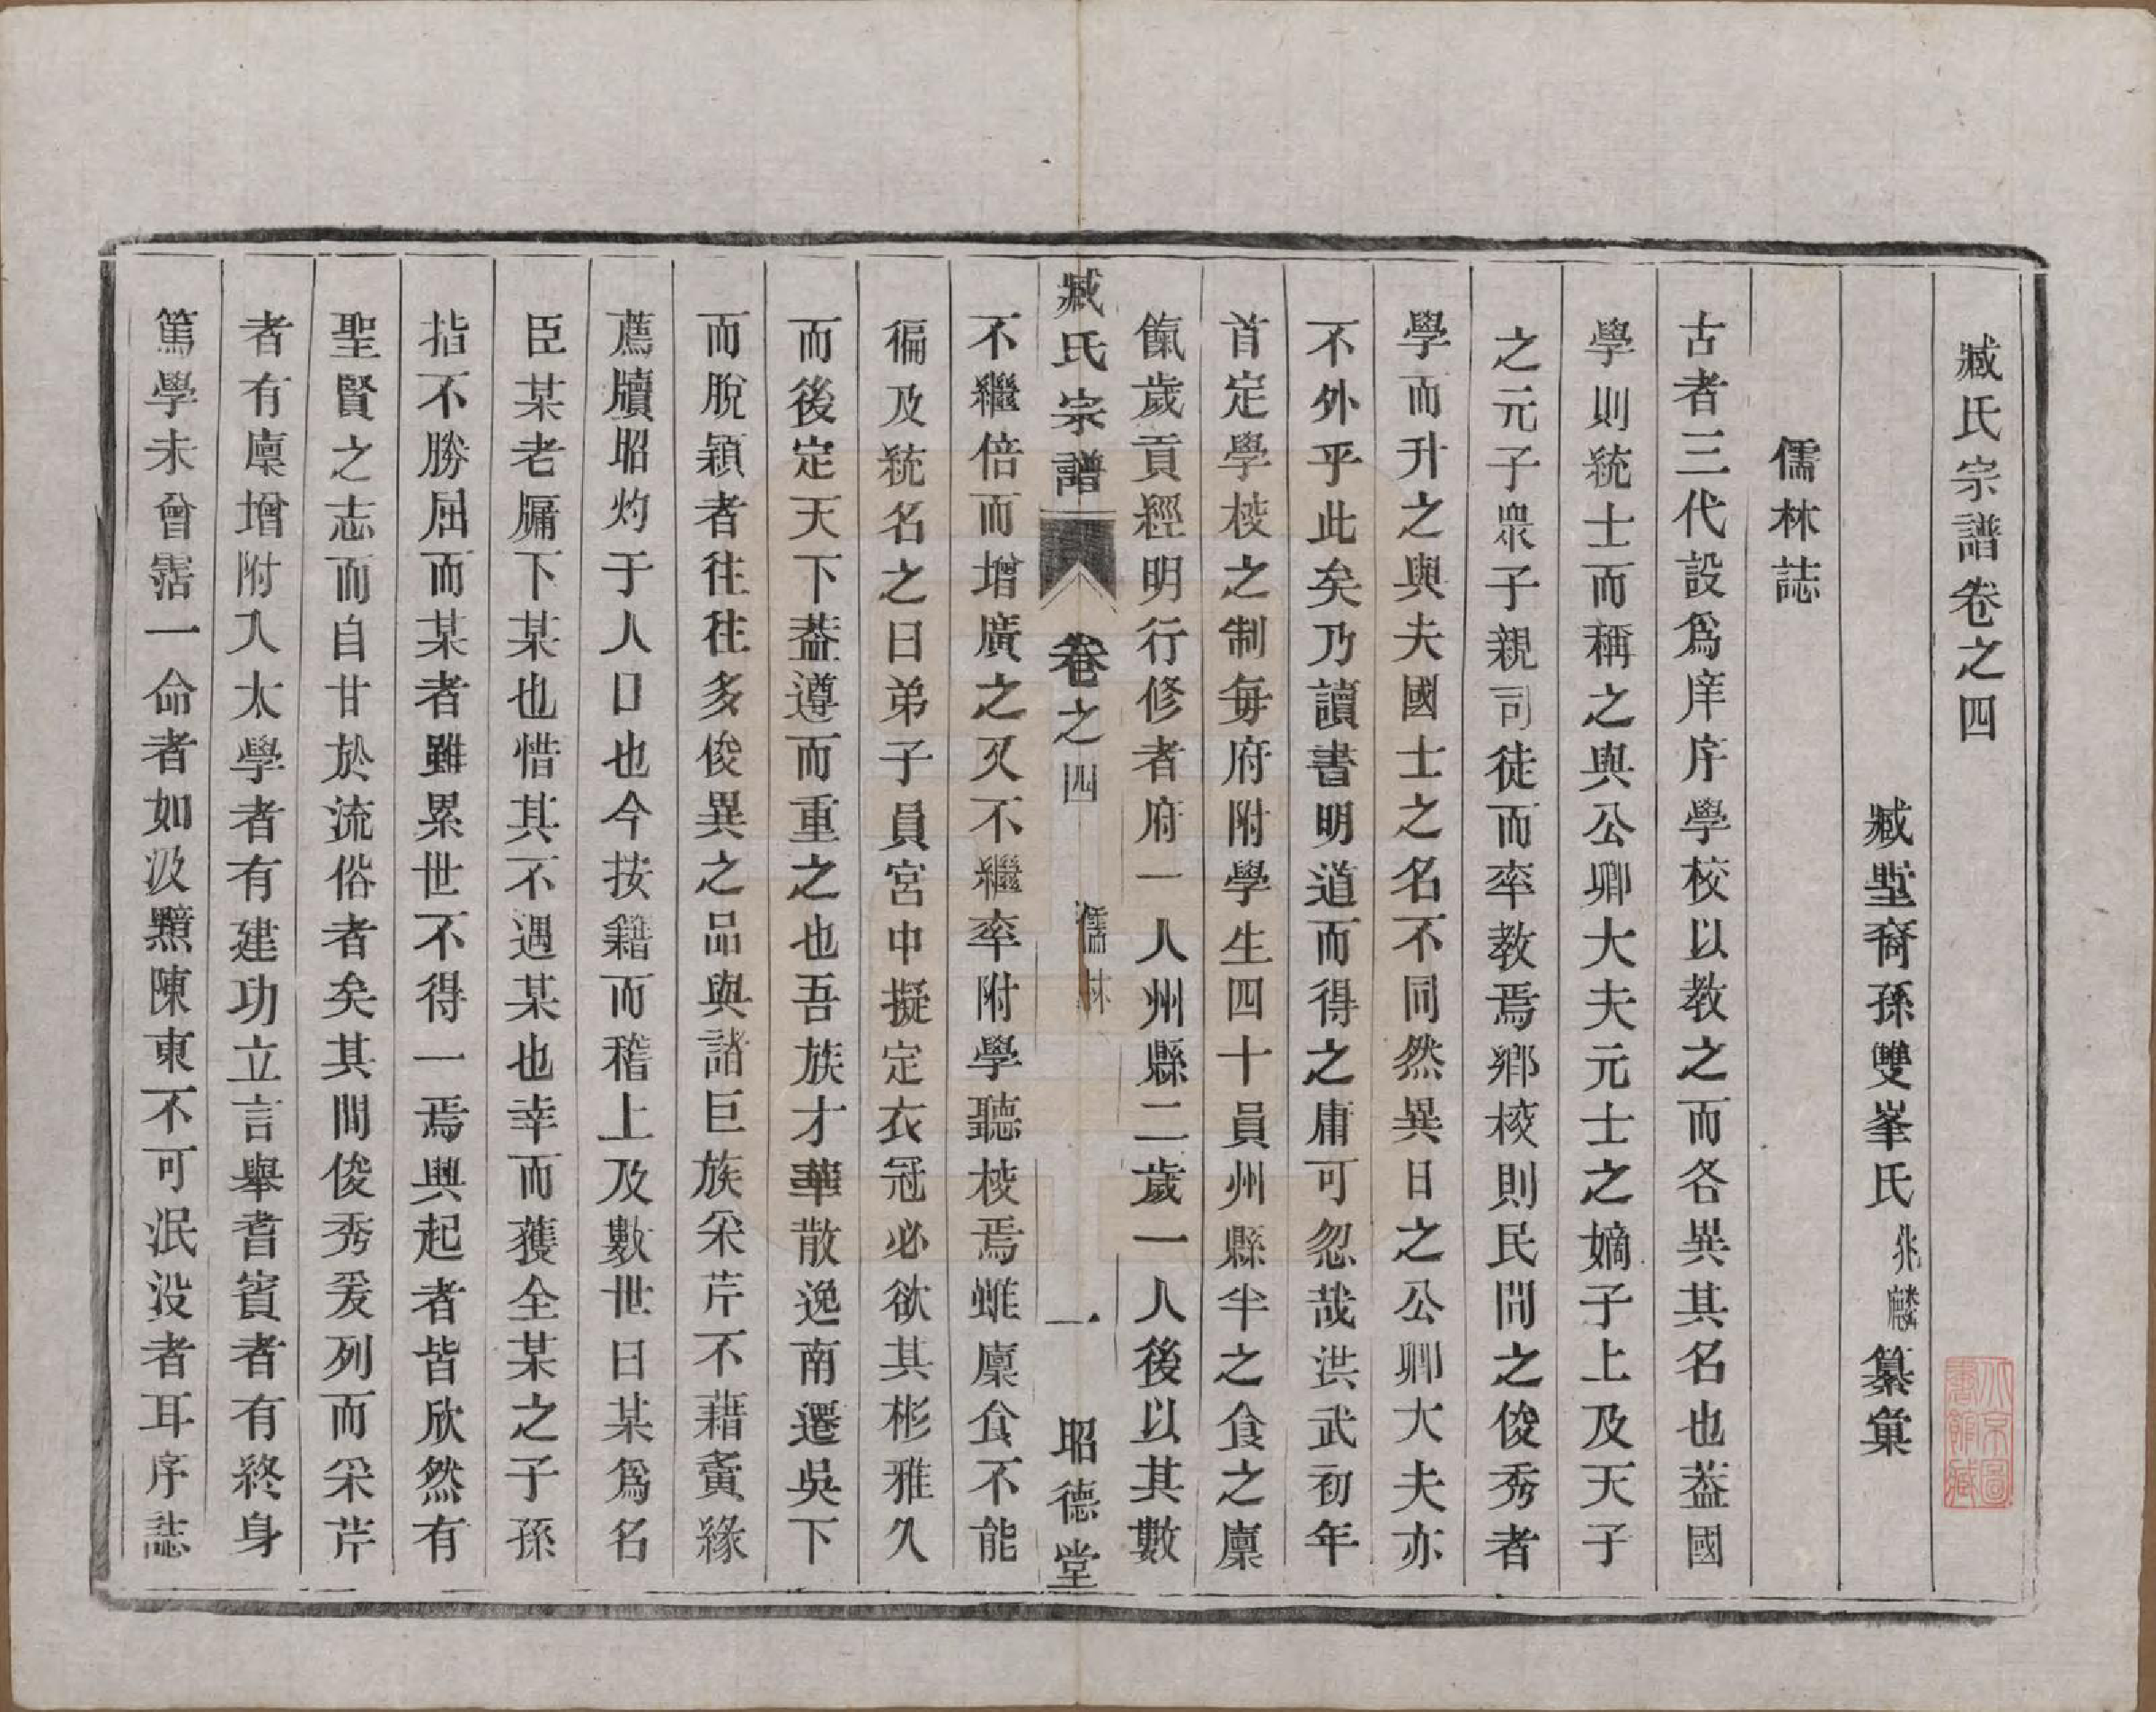 臧氏宗譜卷之四
臧墅裔孫雙峯氏兆麟纂彙
儒林誌
古者三代設爲庠序學校以教之而各異其名也葢國
學則統士而稱之與公卿大夫元士之嫡子上及天子
之元子衆子親司徒而率教焉鄉校則民間之俊秀者
學而升之與夫國士之名不同然異日之公卿大夫亦
不外乎此矣乃讀書明道而得之庸可忽哉洪武初年
首定學校之制每府附學生四十員州縣半之食之廩
餼歲貢經明行修者府一人州縣二歲一人後以其數
臧氏宗譜 卷之四 儒林 一 昭德堂
不繼倍而增廣之又不繼率附學聽校焉雖廩食不能
徧及統名之曰弟子員宮中擬定衣冠必欲其彬雅久
而後定天下葢遵而重之也吾族才華散逸南遷吳下
而脫穎者往往多俊異之品與諸巨族采芹不藉夤緣
薦牘昭灼于人口也今按籍而稽上及數世曰某爲名
臣某老牖下某也惜其不遇某也幸而獲全某之子孫
指不勝屈而某者雖累世不得一焉興起者皆欣然有
聖賢之志而自甘於流俗者矣其間俊秀爰列而采芹
者有廩增附入太學者有建功立言舉耆賓者有終身
篤學未曾霑一命者如汲黯陳東不可泯沒者耳序誌